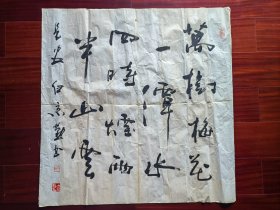 萬樹梅花
一潭水
四時煙雨
半山雲